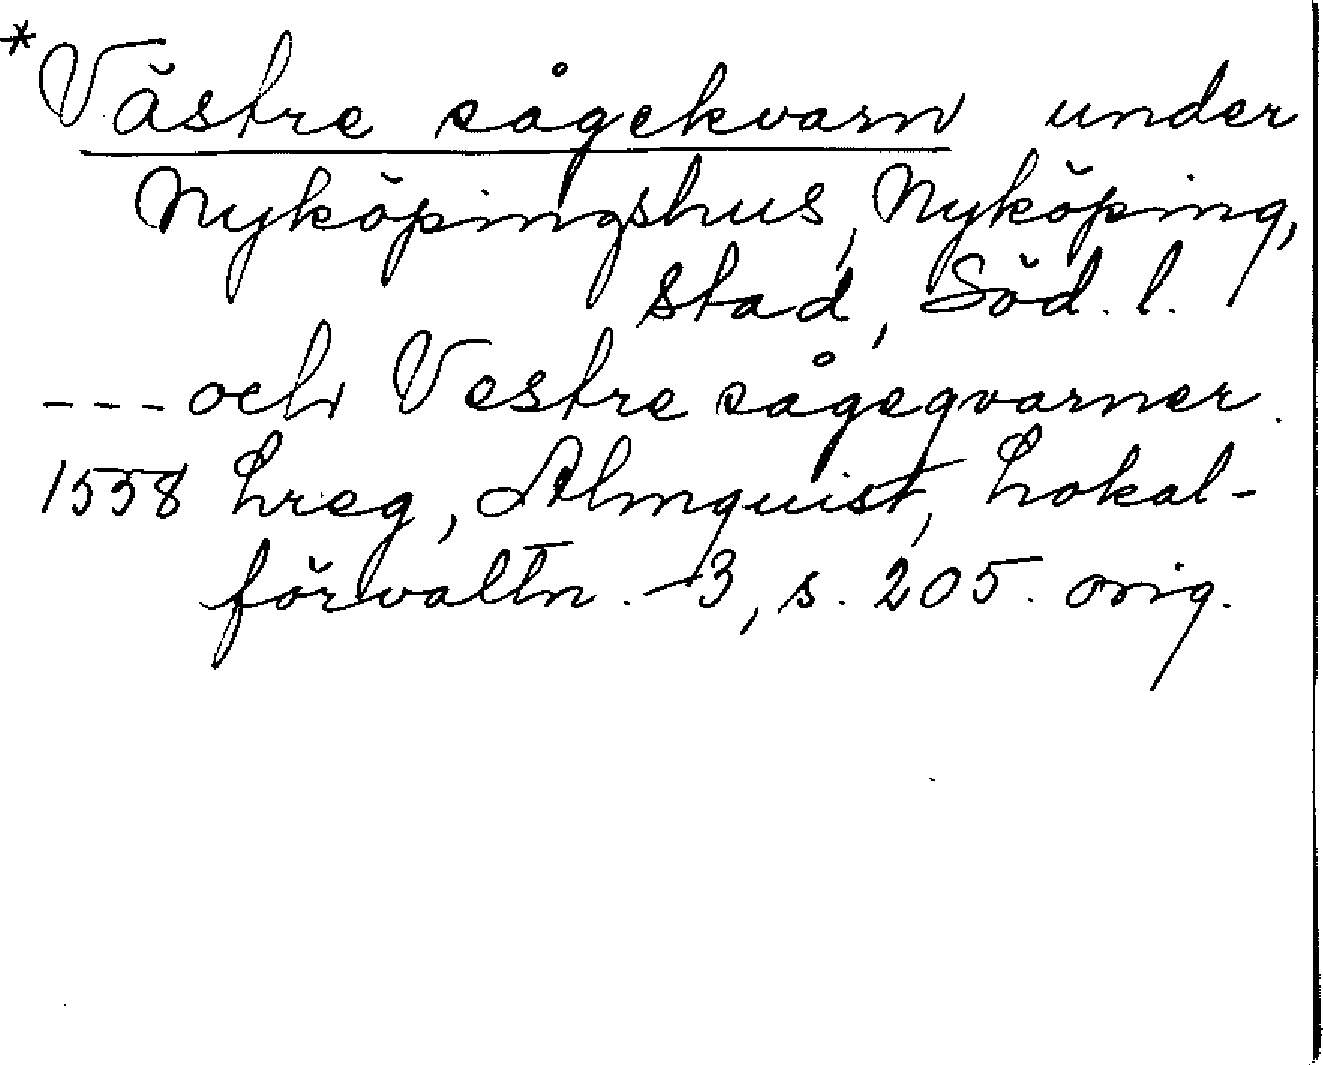 *Västre sågekvarn under
Nyköpingshus, Nyköping,
stad, Söd. l.
--- och Vestre sågeqvarner.
1558 Lreg, Almquist, Lokal-
förvaltn. 3, s. 205. orig.